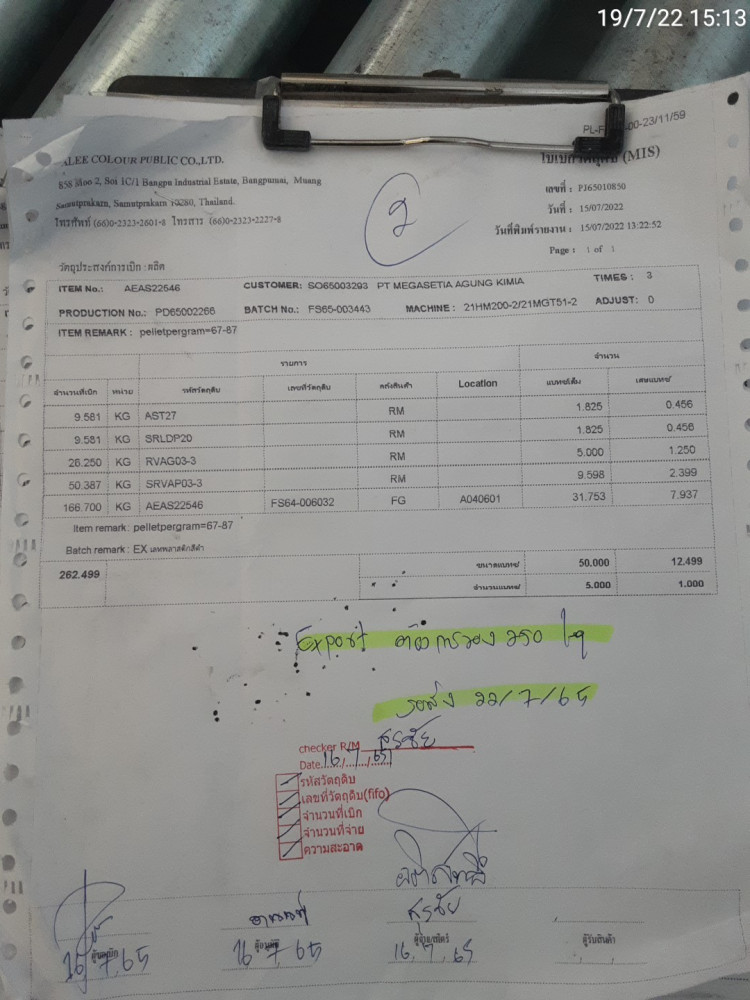 19/7/22 15:13
00-23/11/59
ALEE COLOUR PUBLIC CO.,LTD.
858 Moo 2, Soi 1C/1 Bangpu Industrial Estate, Bangpumai, Muang
Samutprakarn, Samutprakarn 10280, Thailand.
โทรศัพท์ (66)0-2323-2601-8 โทรสาร (66)0-2323-2227-8
ใบเบิกวัตถุดิบ (MIS)
เลขที่ : PJ65010850
วันที่ : 15/07/2022
วันที่พิมพ์รายงาน : 15/07/2022 13:22:52
Page : 1 of 1
2
วัตถุประสงค์การเบิก : ผลิต
ITEM No.: AEAS22546 CUSTOMER: SO65003293 PT MEGASETIA AGUNG KIMIA TIMES : 3
PRODUCTION No.: PD65002266 BATCH No.: FS65-003443 MACHINE : 21HM200-2/21MGT51-2 ADJUST: 0
ITEM REMARK : pelletpergram=67-87
รายการ จำนวน
จำนวนที่เบิก หน่วย รหัสวัตถุดิบ เลขที่วัตถุดิบ คลังสินค้า Location แบทช์เต็ม เศษแบทช์
9.581 KG AST27 RM 1.825 0.456
9.581 KG SRLDP20 RM 1.825 0.456
26.250 KG RVAG03-3 RM 5.000 1.250
50.387 KG SRVAP03-3 RM 9.598 2.399
166.700 KG AEAS22546 FS64-006032 FG A040601 31.753 7.937
Item remark : pelletpergram=67-87
Batch remark : EX เลทพลาสติกสีดำ
262.499 ขนาดแบทช์ 50.000 12.499
จำนวนแบทช์ 5.000 1.000
Export ต้องการของ 250 kg
รอส่ง 22/7/65
checker R/M สุรชัย
Date 16/7/65
รหัสวัตถุดิบ
เลขที่วัตถุดิบ(fifo)
จำนวนที่เบิก
จำนวนที่จ่าย
ความสะอาด
สุรชัย
ผู้รับสินค้า
16/7/65 16 7 65 16/7/65